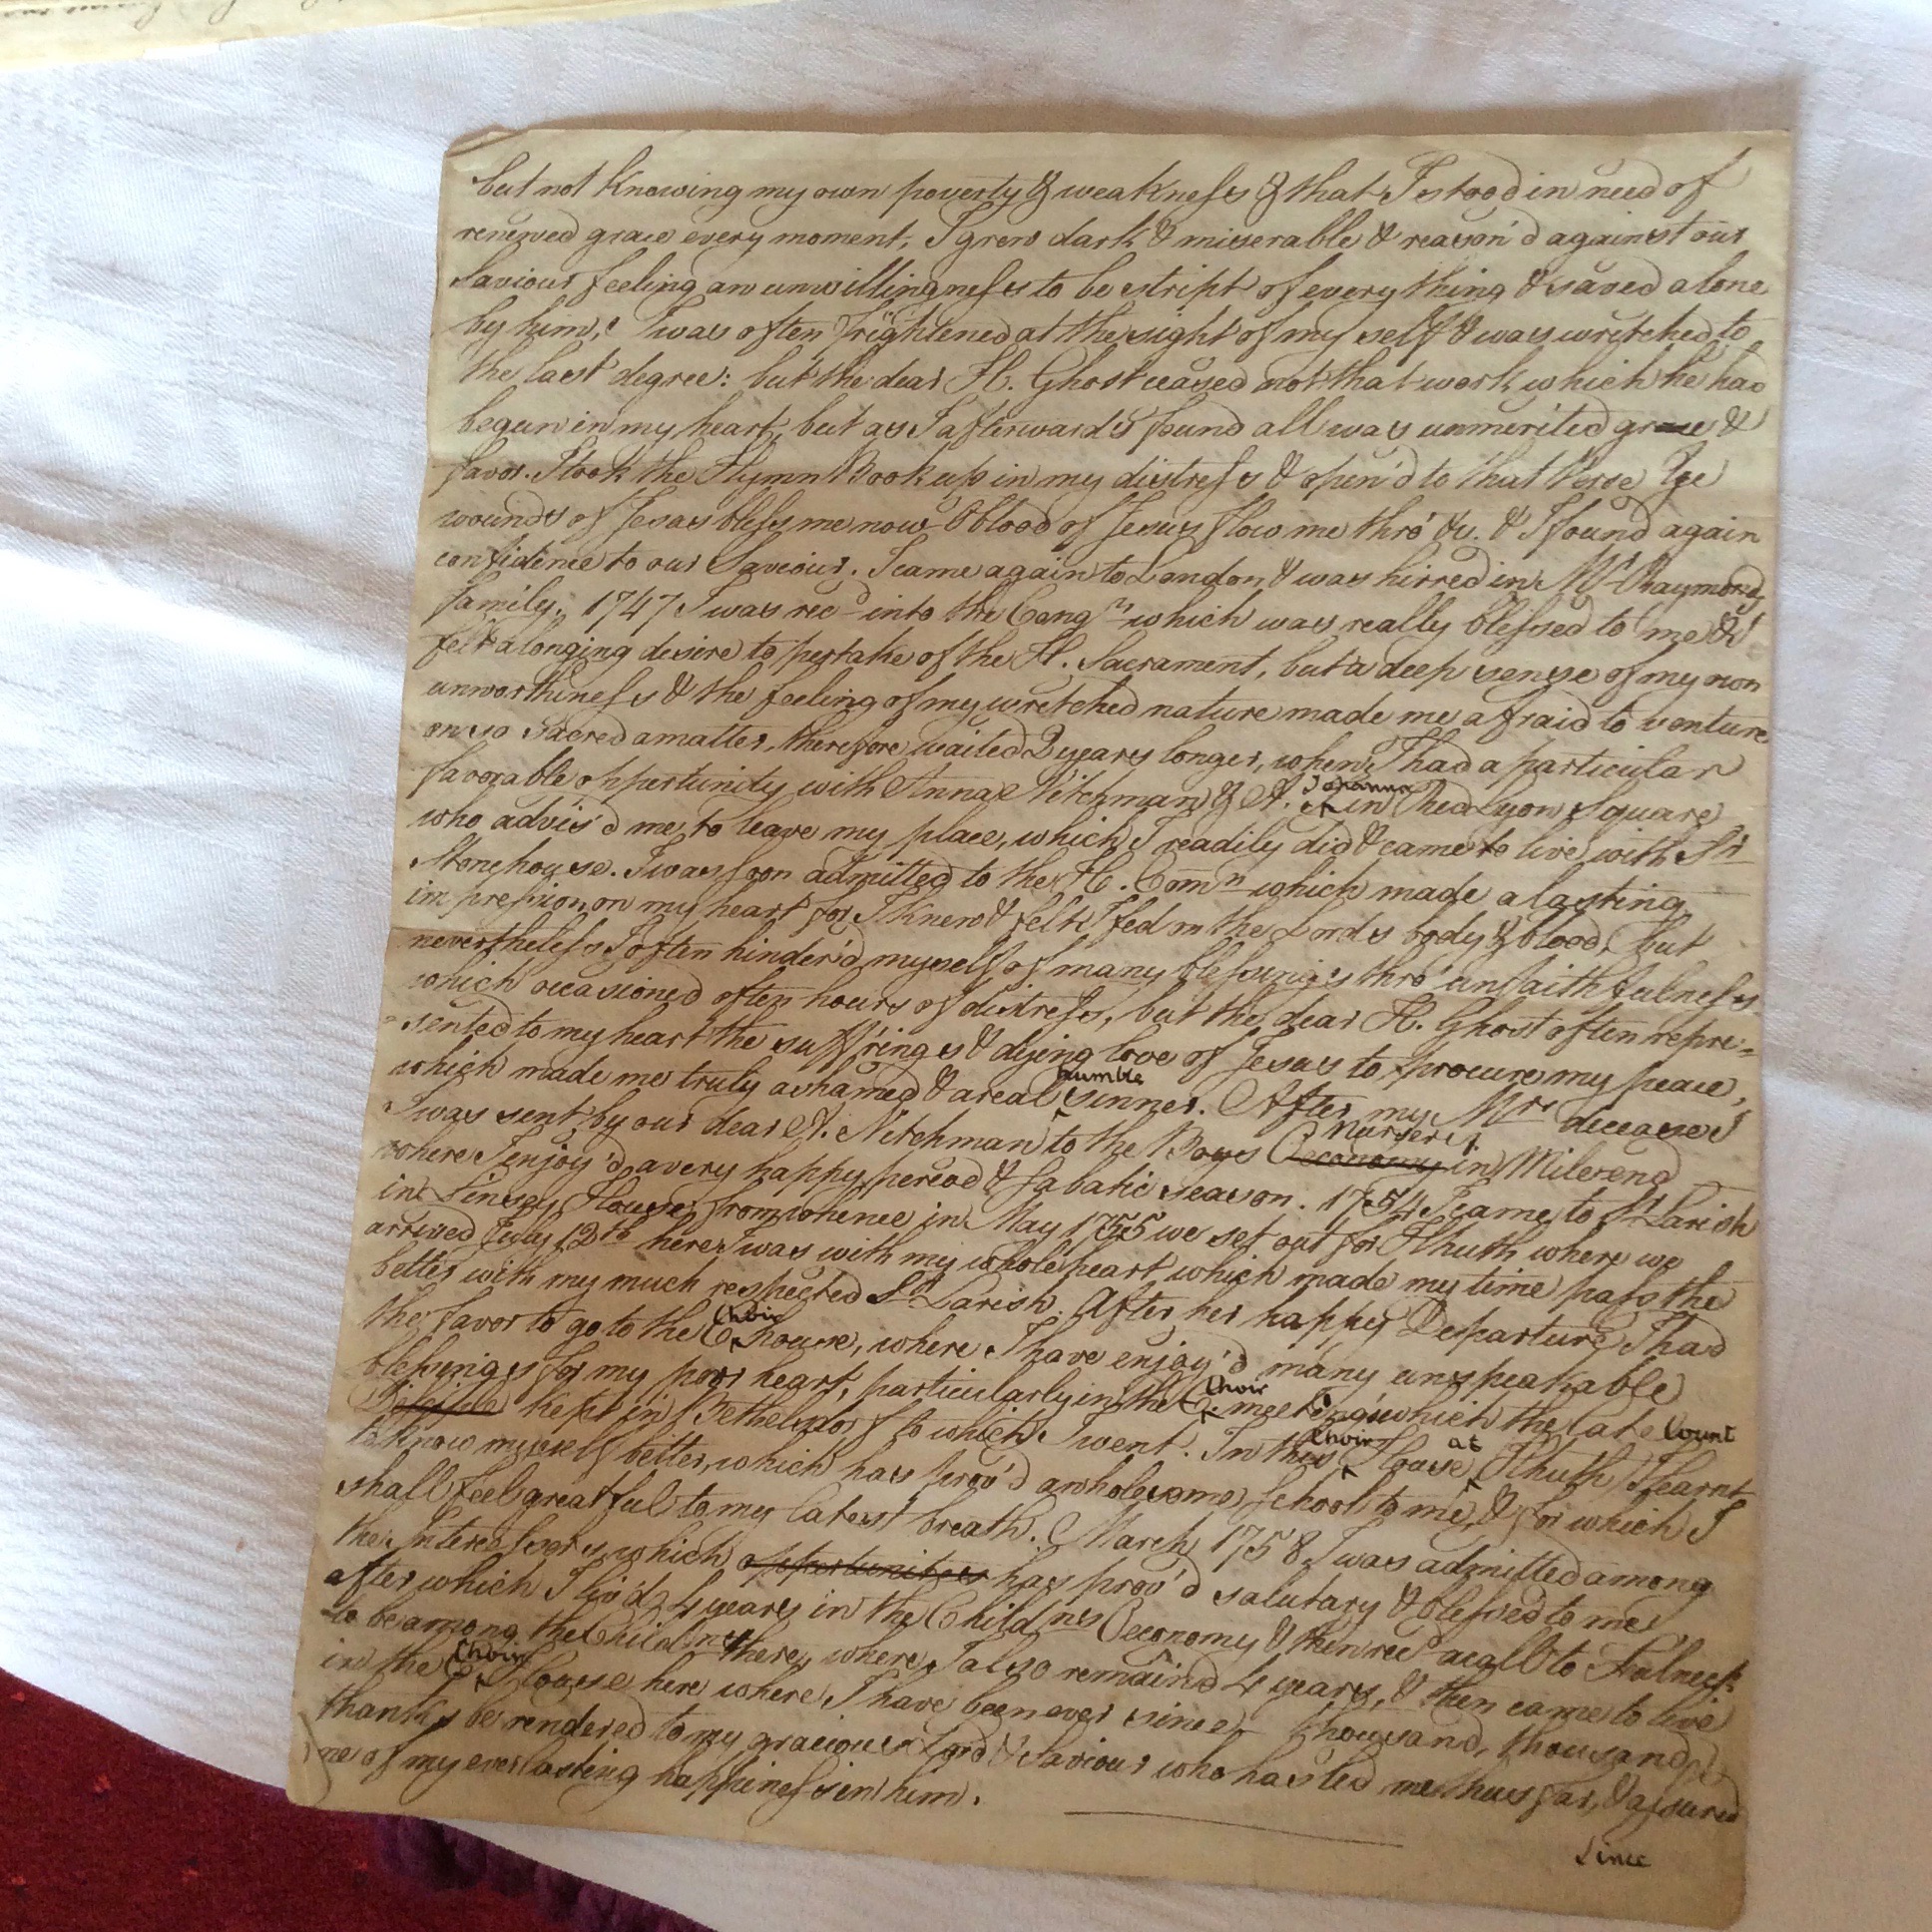 but not knowing my own poverty & weakness & that I stood in need of
renewed grace every moment, I grew dark & misserable & reason'd against our
Saviour feeling an unwillingness to be stript of every thing & saved alone
by him, I was often frightened at the sight of my self & was wretched to
the last degree: but the dear H. Ghost ceased not that work which he had
begun in my heart, but as I afterwards found all was unmerited grace &
favor. I took the Hymn Book up in my distress & open'd to that Verse Ye
wounds of Jesus bless me now O blood of Jesus flow me thro' &c. & I found again
confidence to our Saveiour. I came again to London & was hirred in Mr Raymonds
family. 1747 I was recd into the Congn which was really blessed to me & I
felt a longing desire to pertake of the H. Sacrament, but a deep sense of my non
unworthiness & the feeling of my wretched nature made me afraid to venture
on so sacred a matter, therefore waited 2 years longer, when I had a particular
favorable oppertunity with Anna Nitchman & A. Johanna in Red Lyon Square
who advis'd me to leave my place, which I readily did & came to live with Sr
Stonehouse. I was soon admitted to the H. Comn which made a lasting
impression on my heart for I knew & felt I fed on the Lords body & blood, but
nevertheless I often hinder'd myself of many blessings thro' unfaithfulness
which occasioned often hours of distress, but the dear H. Ghost often repre=
=sented to my heart the suff'rings & dying love of Jesus to procure my peace,
which made me truly ashamed & a real humble sinner. After my Mrs deceased
I was sent by our dear A. Nitchman to the Boys Oeconomy Nursery in Mileend
where I enjoy'd a very happy period & sabatic season. 1754 I came to Sr Larish
in Linsey House, from whence in May 1755 we set out for Hhuth where we
arrived July 12th here I was with my whole heart which made my time pass the
better with my much respected Sr Larish. After her happy Departure I had
the favor to go to the C. Choir house, where I have enjoy'd many unspeakable
blessings for my poor heart, particularly in the C. Choir meetings which the late Count
kept in Bethelsdorf to which I went. In this Choir House at Hhuth I learnt
to know myself better, which has prov'd a wholesome school to me, & for which I
shall feel greatful to my latest breath. March 1758 I was admitted among
the Intercessors, which oppertunitees has prov'd salutary & blessed to me
after which I liv'd 4 years in the Childns Oeconomy & then recd a call to Fulneck
to be among the Childns there, where I also remaind 4 years, & then came to live
in the C. Choir House here where I have been ever since, thousand, thousand
thanks be rendered to my gracious Lord & Saviour who has led me thus far, & assured
me of my everlasting happiness in him.
Since